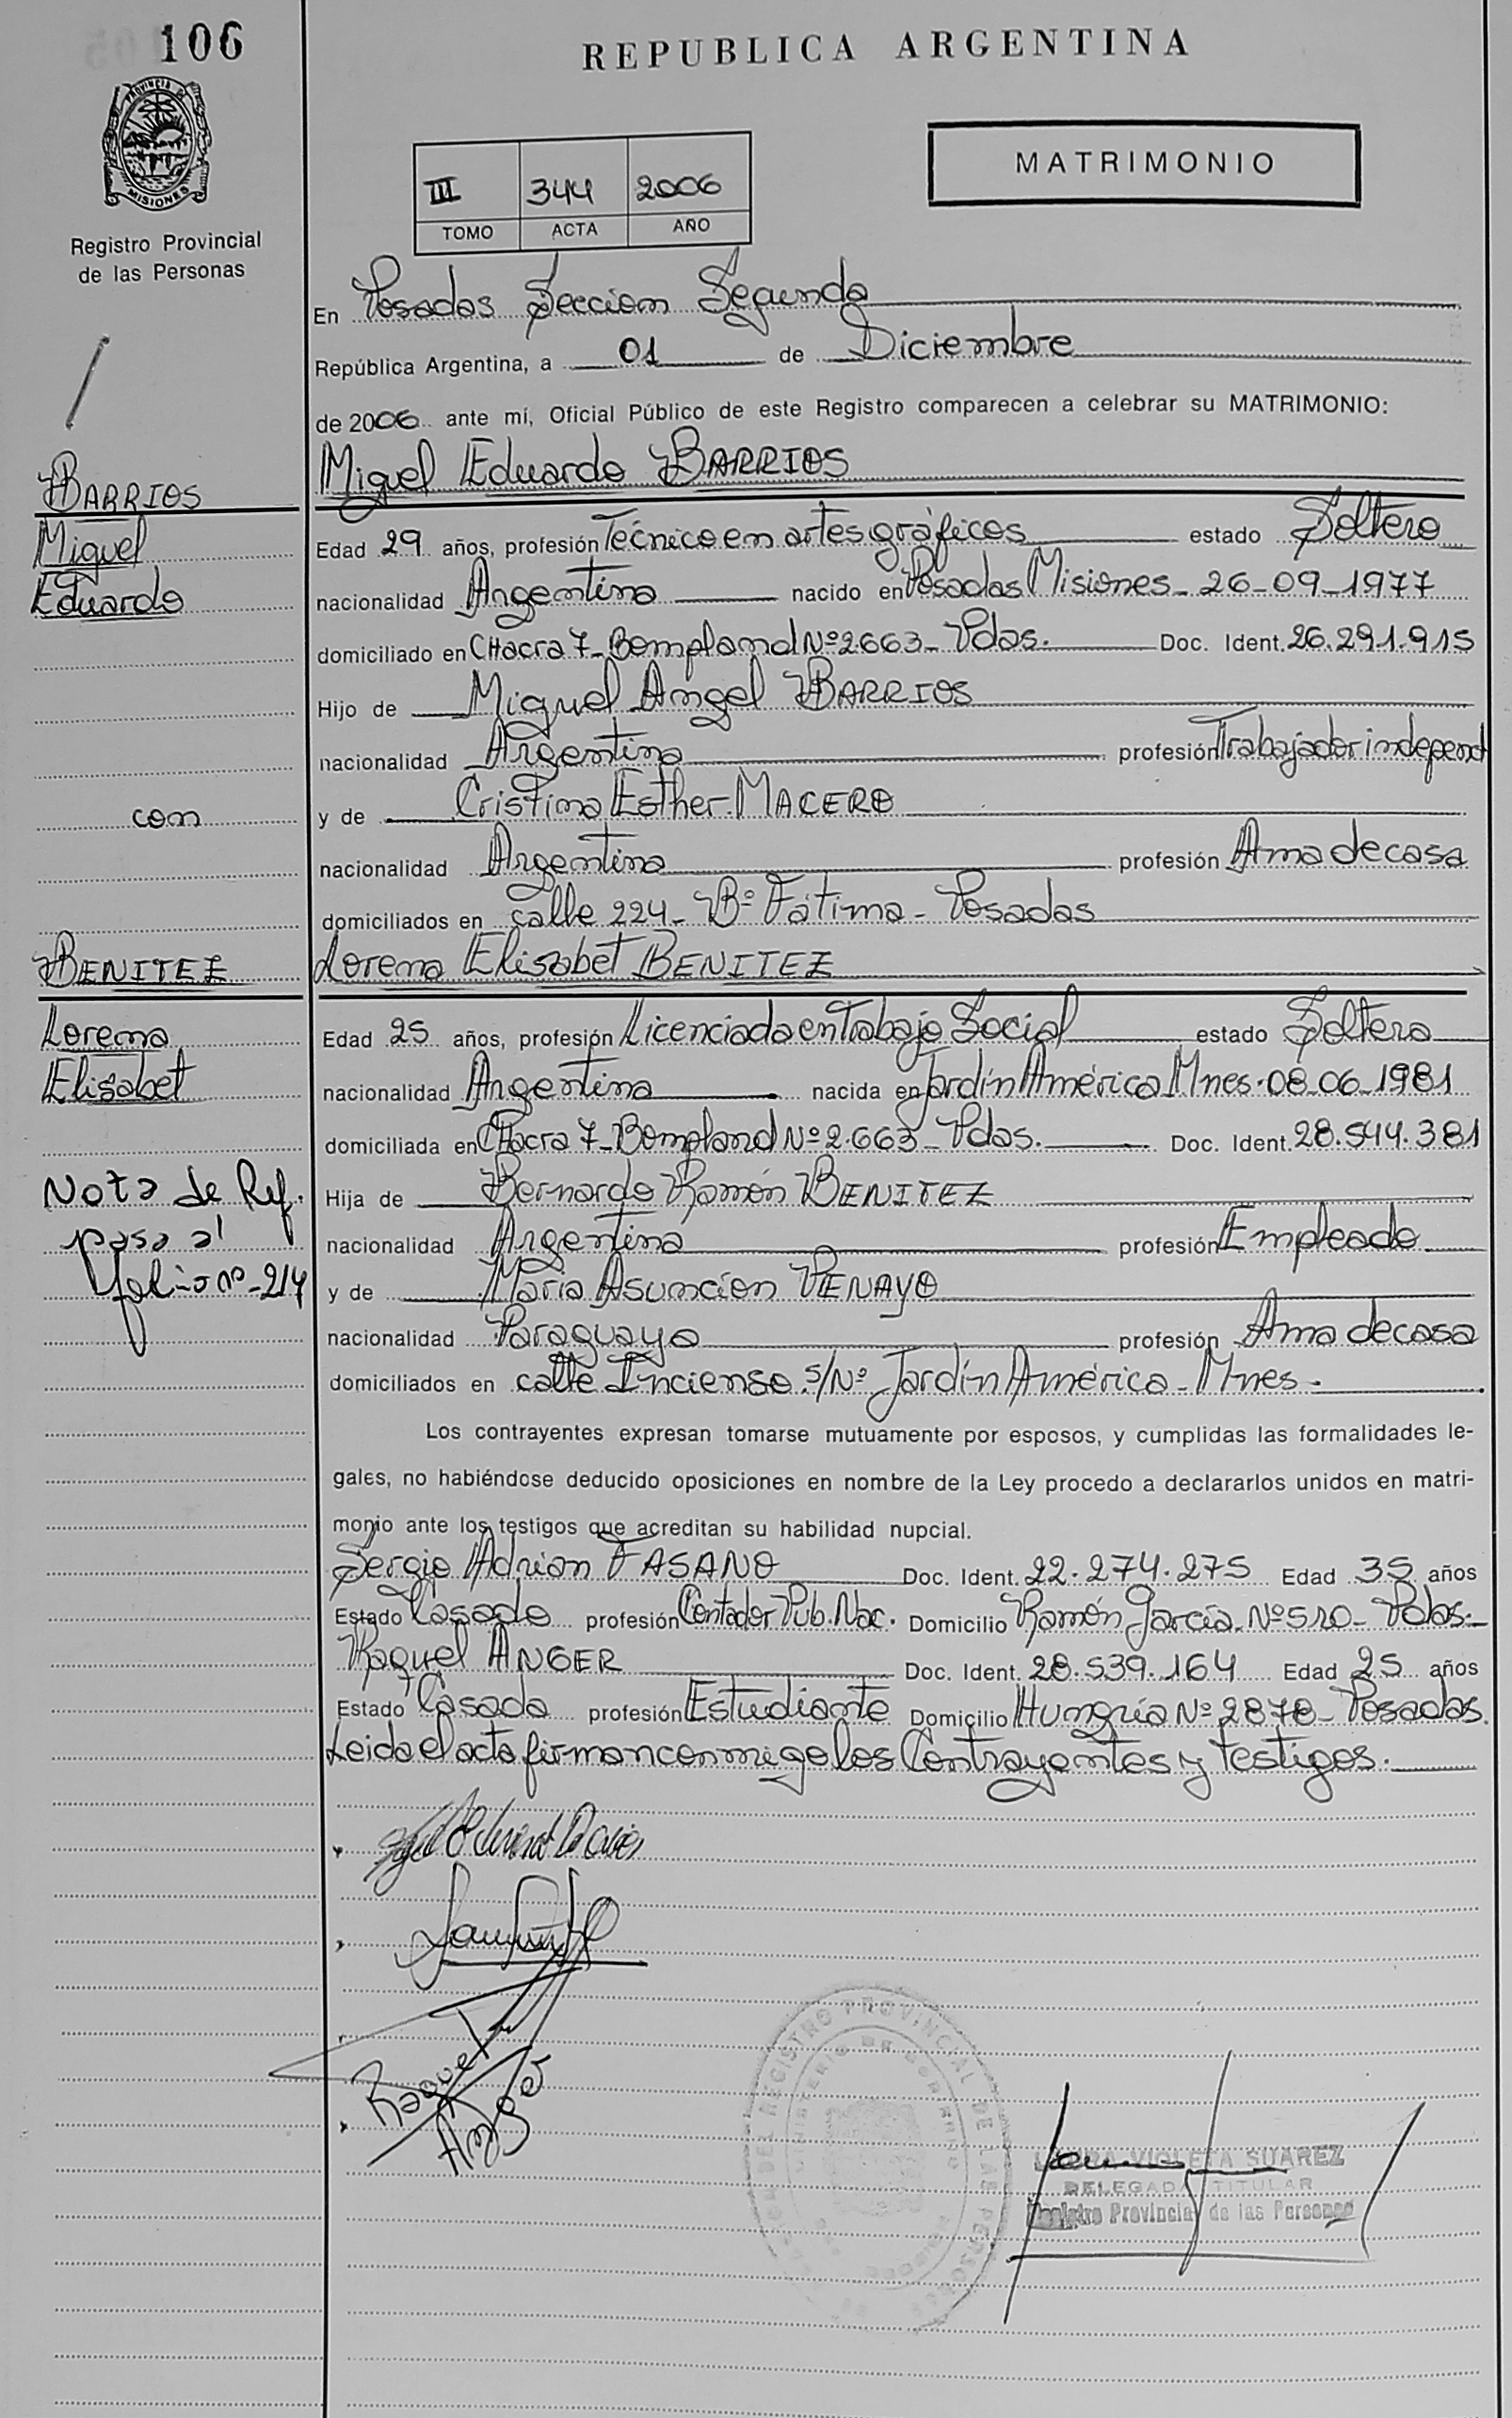 106
REPUBLICA ARGENTINA
PROVINCIA DE
MISIONES
MATRIMONIO
III 344 2006
TOMO ACTA AÑO
Registro Provincial
de las Personas
En Posadas Sección Segunda
República Argentina, a 01 de Diciembre
de 2006 ante mí, Oficial Público de este Registro comparecen a celebrar su MATRIMONIO:
BARRIOS
Miguel
Eduardo
con
BENITEZ
Lorena
Elisabet
Nota de Ref.
pasa al
folio nº-214
Miguel Eduardo BARRIOS
Edad 29 años, profesión Técnico en artes gráficas estado Soltero
nacionalidad Argentina nacido en Posadas Misiones - 26-09-1977
domiciliado en CHacra 7- Bompland Nº2.663- Pdas. Doc. Ident. 26.291.915
Hijo de Miguel Angel BARRIOS
nacionalidad Argentina profesión Trabajador independ
y de Cristina Esther MACERO
nacionalidad Argentina profesión Ama de casa
domiciliados en calle 224- Bº Fátima - Posadas
Lorena Elisabet BENITEZ
Edad 25 años, profesión Licenciada en Trabajo Social estado Soltera
nacionalidad Argentina nacida en Jardín América Mnes. 08-06-1981
domiciliada en CHacra 7- Bompland Nº2.663- Pdas. Doc. Ident. 28.544.381
Hija de Bernardo Ramón BENITEZ
nacionalidad Argentina profesión Empleado
y de María Asunción PENAYO
nacionalidad Paraguaya profesión Ama de casa
domiciliados en calle Incienso s/Nº Jardín América - Mnes.
Los contrayentes expresan tomarse mutuamente por esposos, y cumplidas las formalidades le-
gales, no habiéndose deducido oposiciones en nombre de la Ley procedo a declararlos unidos en matri-
monio ante los testigos que acreditan su habilidad nupcial.
Sergio Adrian FASANO Doc. Ident. 22.274.275 Edad 35 años
Estado Casado profesión Contador Pub. Nac. Domicilio Ramón García Nº510- Pdas.
Raquel ANGER Doc. Ident. 28.539.164 Edad 25 años
Estado Casada profesión Estudiante Domicilio Hungría Nº 2870- Posadas.
Leida el acta firman conmigo los Contrayentes y testigos.
Raquel
Anger
REGISTRO PROVINCIAL DE LAS PERSONAS
MINISTERIO DE GOBIERNO
LAURA VIOLETA SUAREZ
DELEGADA TITULAR
Registro Provincial de las Personas